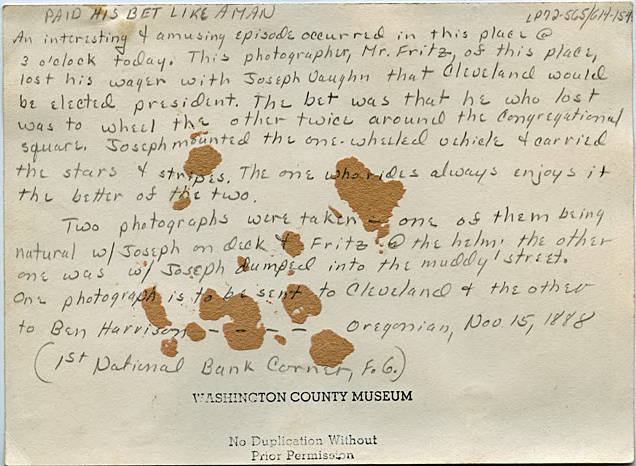 PAID HIS BET LIKE A MAN
LP72-565/614-154
An interesting & amusing episode occurred in this place @
3 o'clock today. This photographer, Mr. Fritz, of this place,
lost his wager with Joseph Vaughn that Cleveland would
be elected president. The bet was that he who lost
was to wheel the other twice around the Congregational
square. Joseph mounted the one-wheeled vehicle & carried
the stars & stripes. The one who rides always enjoys it
the better of the two.
Two photographs were taken — one of them being
natural w/ Joseph on deck & Fritz @ the helm; the other
one was w/ Joseph dumped into the muddy street.
One photograph is to be sent to Cleveland & the other
to Ben Harrison - - - - - Oregonian, Nov. 15, 1888
(1st National Bank Corner, F.G.)
WASHINGTON COUNTY MUSEUM
No Duplication Without
Prior Permission